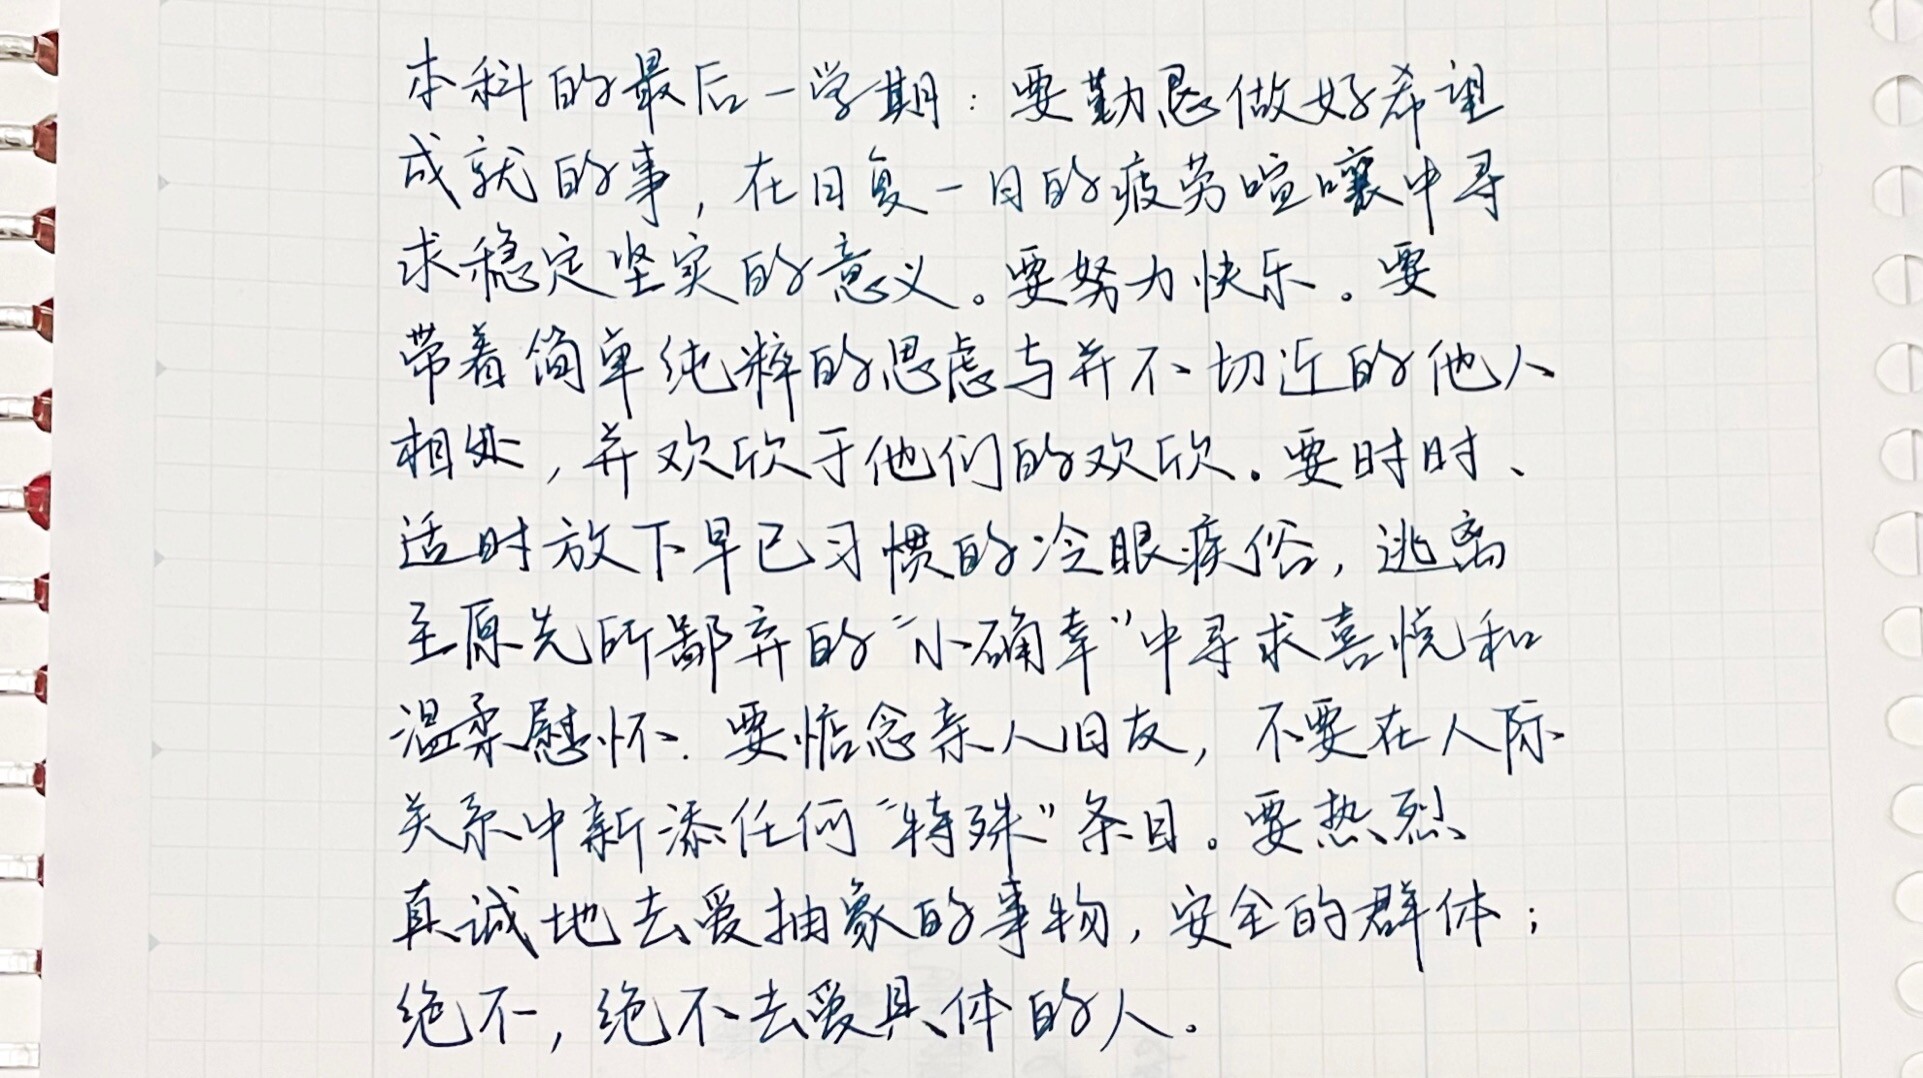 本科的最后一学期：要勤恳做好希望
成就的事，在日复一日的疲劳喧嚷中寻
求稳定坚实的意义。要努力快乐。要
带着简单纯粹的思虑与并不切近的他人
相处，并欢欣于他们的欢欣。要时时、
适时放下早已习惯的冷眼疾俗，逃离
至原先所鄙弃的“小确幸”中寻求喜悦和
温柔慰怀。要惦念亲人旧友，不要在人际
关系中新添任何“特殊”条目。要热烈
真诚地去爱抽象的事物，安全的群体；
绝不，绝不去爱具体的人。